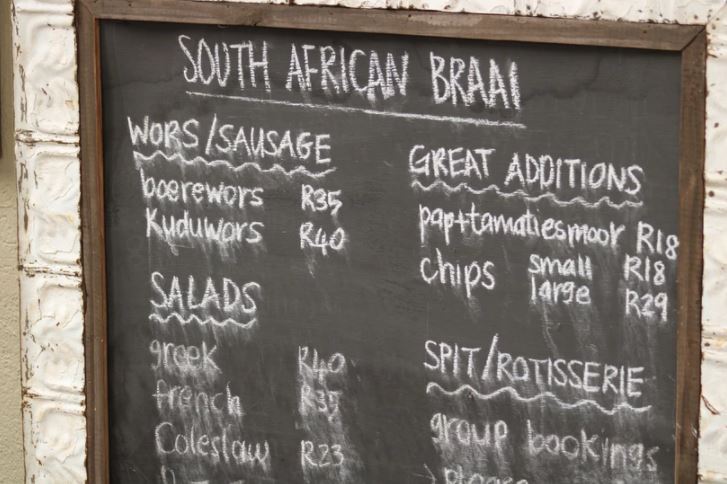 SOUTH AFRICAN BRAAI
WORS/SAUSAGE
boerewors R35
Kuduwors R40
SALADS
greek R40
french R35
Coleslaw R23
GREAT ADDITIONS
pap+tamatiesmoor R18
chips small R18
large R29
SPIT/ROTISSERIE
group bookings
please